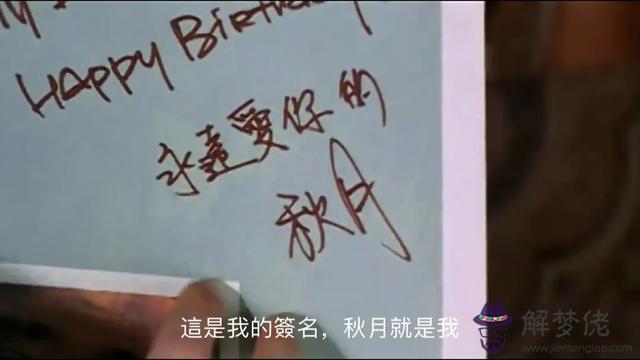 HAPPY Birthday
永遠愛你的
秋月
這是我的簽名，秋月就是我
解梦佬
www.jiemenglao.com